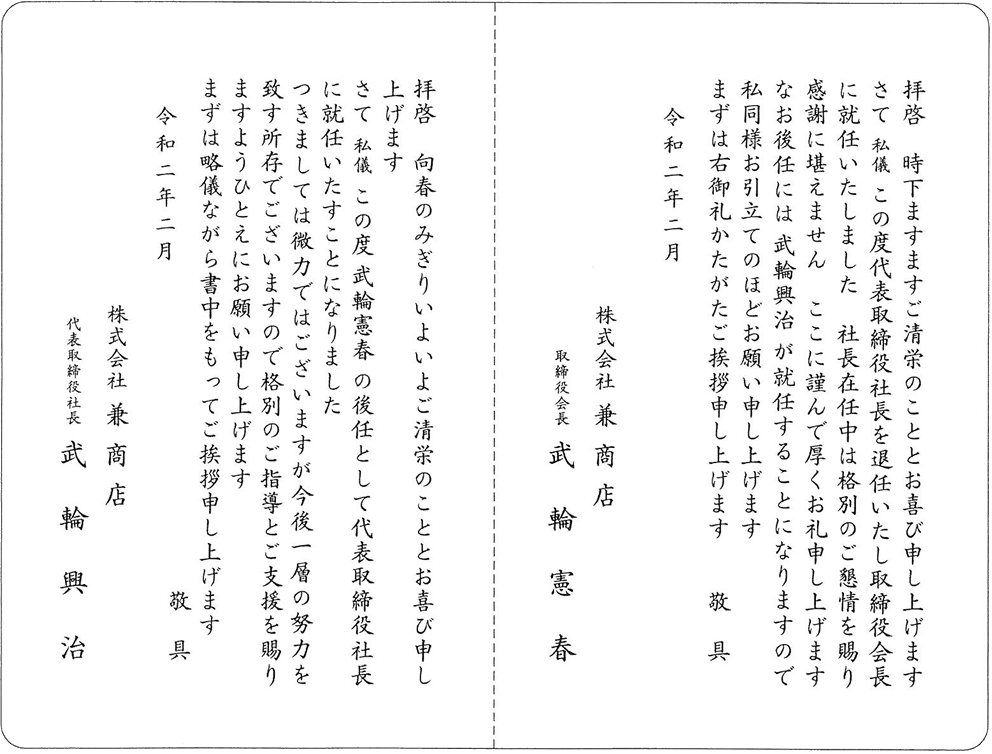 拝啓　時下ますますご清栄のこととお喜び申し上げます
さて 私儀 この度代表取締役社長を退任いたし取締役会長
に就任いたしました　社長在任中は格別のご懇情を賜り
感謝に堪えません　ここに謹んで厚くお礼申し上げます
なお後任には 武輪興治 が就任することになりますので
私同様お引立てのほどお願い申し上げます
まずは右御礼かたがたご挨拶申し上げます　敬具
令和二年二月
株式会社 兼商店
取締役会長 武輪憲春
拝啓　向春のみぎりいよいよご清栄のこととお喜び申し
上げます
さて 私儀 この度 武輪憲春 の後任として代表取締役社長
に就任いたすことになりました
つきましては微力ではございますが今後一層の努力を
致す所存でございますので格別のご指導とご支援を賜り
ますようひとえにお願い申し上げます
まずは略儀ながら書中をもってご挨拶申し上げます
敬具
令和二年二月
株式会社 兼商店
代表取締役社長 武輪興治